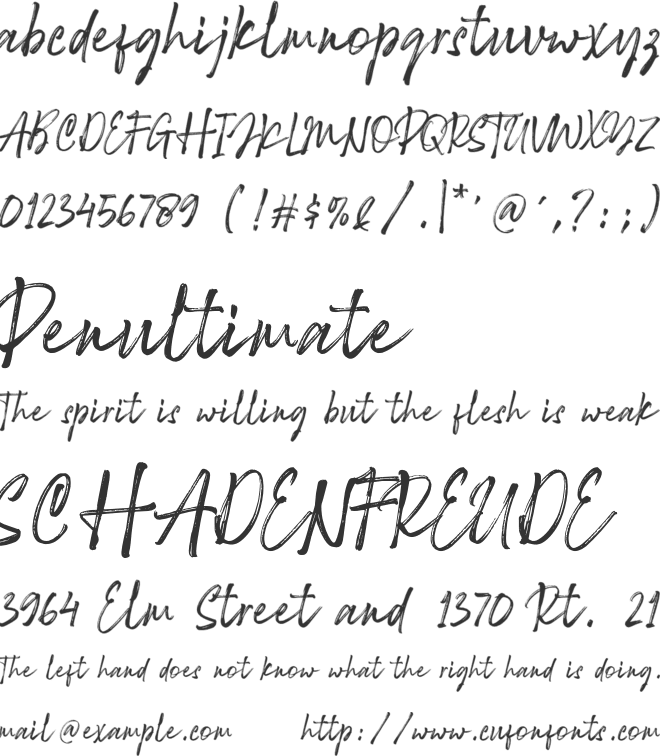 abcdefghijklmnopqrstuvwxyz
ABCDEFGHIJKLMNOPQRSTUVWXYZ
0123456789 (!#$%&/.|*'@´,?:;)
Penultimate
The spirit is willing but the flesh is weak
SCHADENFREUDE
3964 Elm Street and 1370 Rt. 21
The left hand does not know what the right hand is doing.
mail@example.com http://www.eufonfonts.com